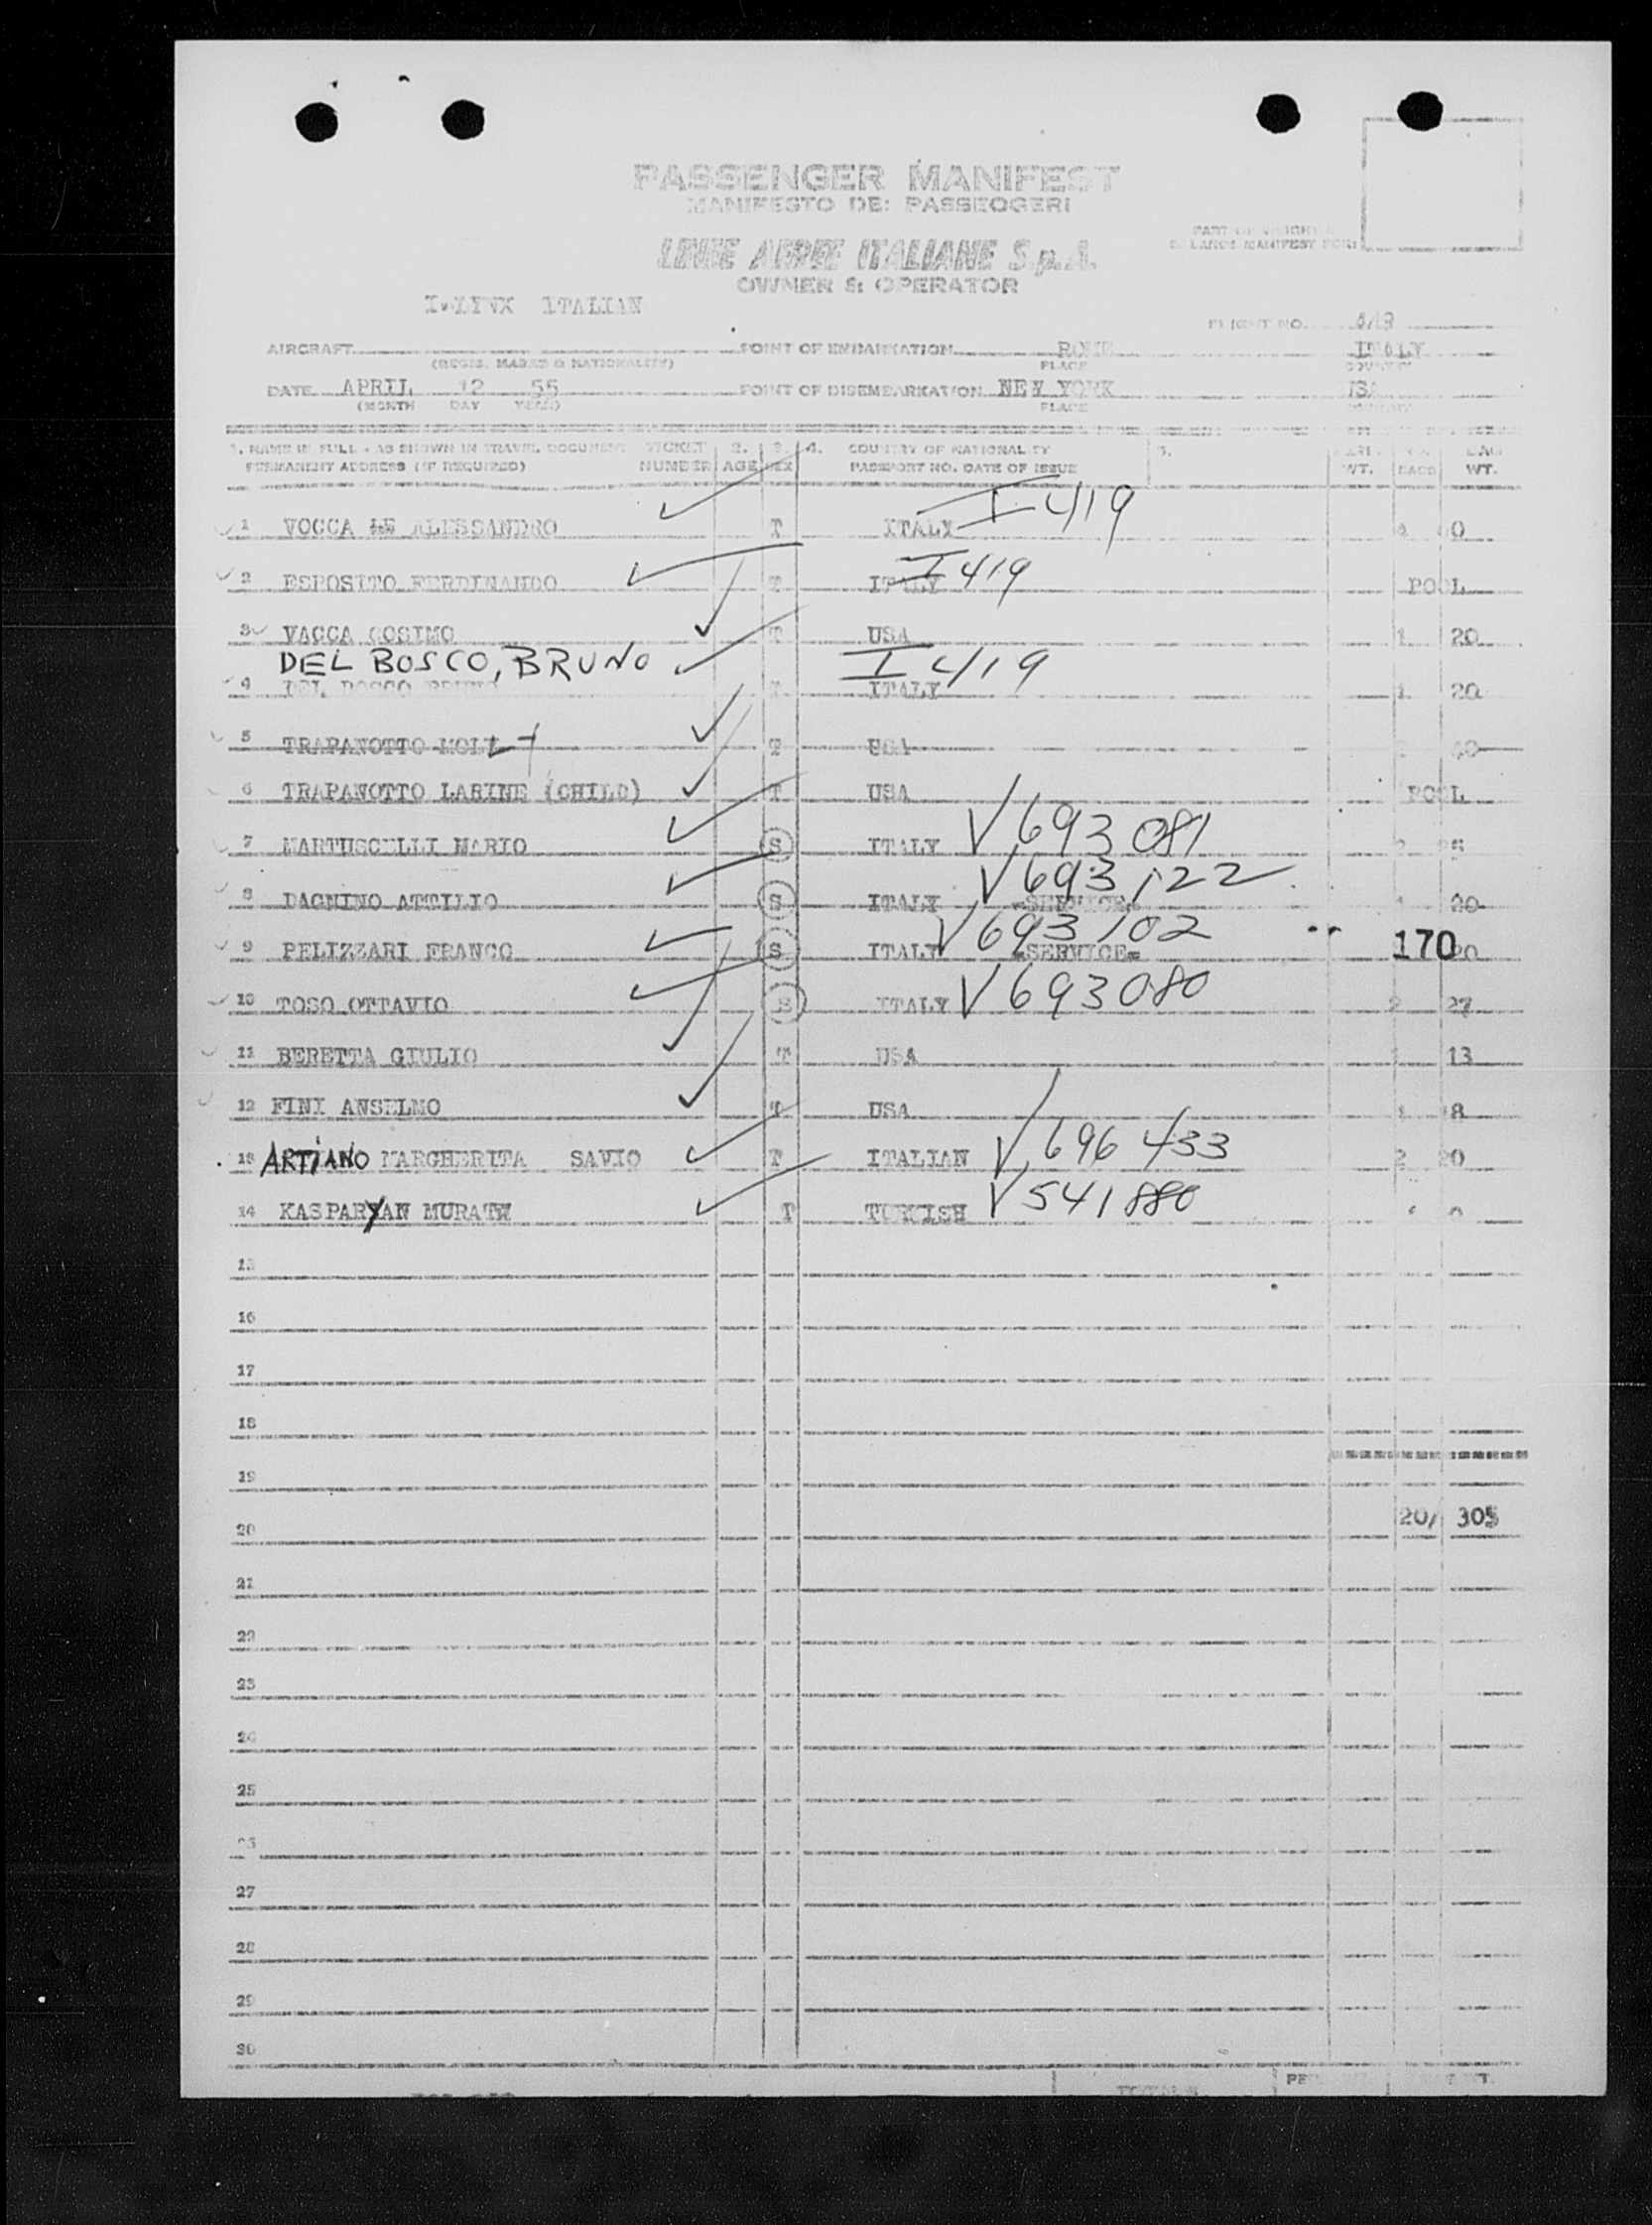 PASSENGER MANIFEST
MANIFESTO DEI PASSEGGERI
LINEE AEREE ITALIANE S.p.A.
OWNER & OPERATOR
PART OF WEIGHT &
BALANCE MANIFEST FOR:
I-LYNX ITALIAN
FLIGHT NO.
AIRCRAFT POINT OF EMBARKATION ROME ITALY
(REGIS. MARKS & NATIONALITY) PLACE COUNTRY
DATE APRIL 12 55 POINT OF DISEMBARKATION NEW YORK USA
(MONTH DAY YEAR) PLACE COUNTRY
1. NAME IN FULL - AS SHOWN IN TRAVEL DOCUMENT TICKET 2. 3. 4. COUNTRY OF NATIONALITY 5.
PERMANENT ADDRESS (IF REQUIRED) NUMBER AGE SEX PASSPORT NO. DATE OF ISSUE WT. BAGS WT.
I 419
1 VOCCA LE ALESSANDRO T ITALY
I 419
2 ESPOSITO FERDINANDO T ITALY POOL
3 VACCA COSIMO T USA 1 20
DEL BOSCO, BRUNO I 419
4 DEL BOSCO BRUNO T ITALY 1 20
5 TRAPANOTTO MOLL T USA
6 TRAPANOTTO LARINE (CHILD) T USA POOL
7 MARTUSCELLI MARIO S ITALY V693081
8 DAGNINO ATTILIO S ITALY V693122 =SERVICE= 1 20
9 PELIZZARI FRANCO S ITALY V693102 =SERVICE= 170 20
10 TOSO OTTAVIO S ITALY V693080 2 27
11 BERETTA GIULIO T USA 1 13
12 FINI ANSELMO T USA 1 18
13 ARTIANO MARGHERITA SAVIO T ITALIAN V696433 2 20
14 KASPARYAN MURATE T TURKISH V541880
15
16
17
18
19
20 20/ 305
21
22
23
24
25
26
27
28
29
30